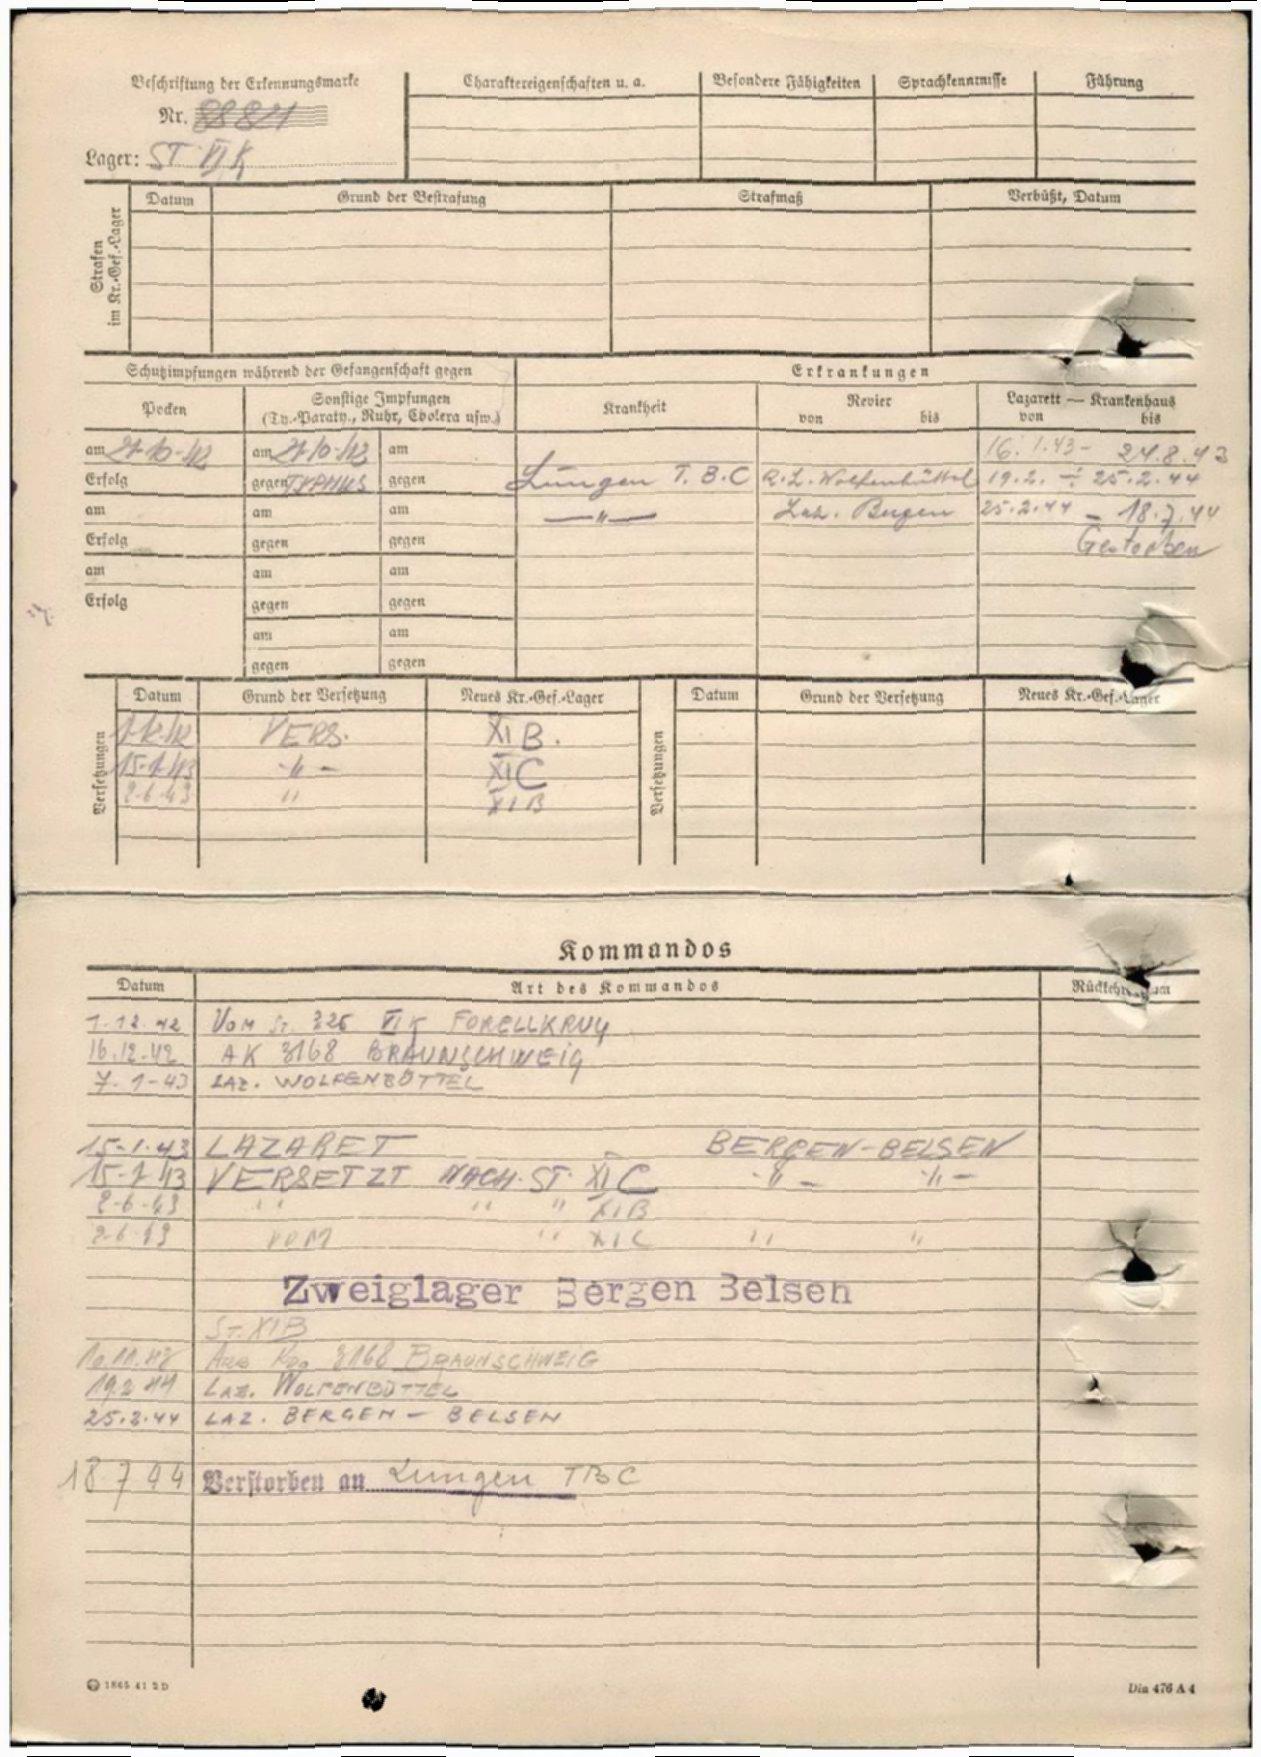 Beschriftung der Erkennungsmarke
Nr. 88821
Lager: ST VI K
Charaktereigenschaften u. a.
Besondere Fähigkeiten
Sprachkenntnisse
Führung
Strafen im Kr.-Gef.-Lager
Datum
Grund der Bestrafung
Strafmaß
Verbüßt, Datum
Schutzimpfungen während der Gefangenschaft gegen
Erkrankungen
Pocken
Sonstige Impfungen
(Ty.-Paraty., Ruhr, Cholera usw.)
Krankheit
Revier
von bis
Lazarett — Krankenhaus
von bis
am am am 16.1.43 - 24.8.43
Erfolg gegen TYPHUS gegen Lungen T.B.C R.L. Wolfenbüttel 19.2. ÷ 25.2.44
am am am —"— Laz. Bergen 25.2.44 - 18.7.44
Erfolg gegen gegen Gestorben
am am am
Erfolg gegen gegen
am am
gegen gegen
Versetzungen
Datum Grund der Versetzung Neues Kr.-Gef.-Lager
VERS. XI B.
15-1-43 -"- XI C
2-6-43 " XI B
Versetzungen
Datum Grund der Versetzung Neues Kr.-Gef.-Lager
Kommandos
Datum Art des Kommandos
1.12.42 VOM St. 326 VI K FORELLKRUG
16.12.42 AK 3168 BRAUNSCHWEIG
7.1-43 LAZ. WOLFENBÜTTEL
15-1.43 LAZARET BERGEN-BELSEN
15-1-43 VERSETZT NACH. ST. XI C -"- -"-
2-6-43 " " " XI B
2.6.43 VOM " XI C " "
Zweiglager Bergen Belsen
ST. XI B
3168 BRAUNSCHWEIG
19.2.44 LAZ. WOLFENBÜTTEL
25.2.44 LAZ. BERGEN - BELSEN
18.7.44 Verstorben an Lungen TBC
1865 41 2 D
Din 476 A 4